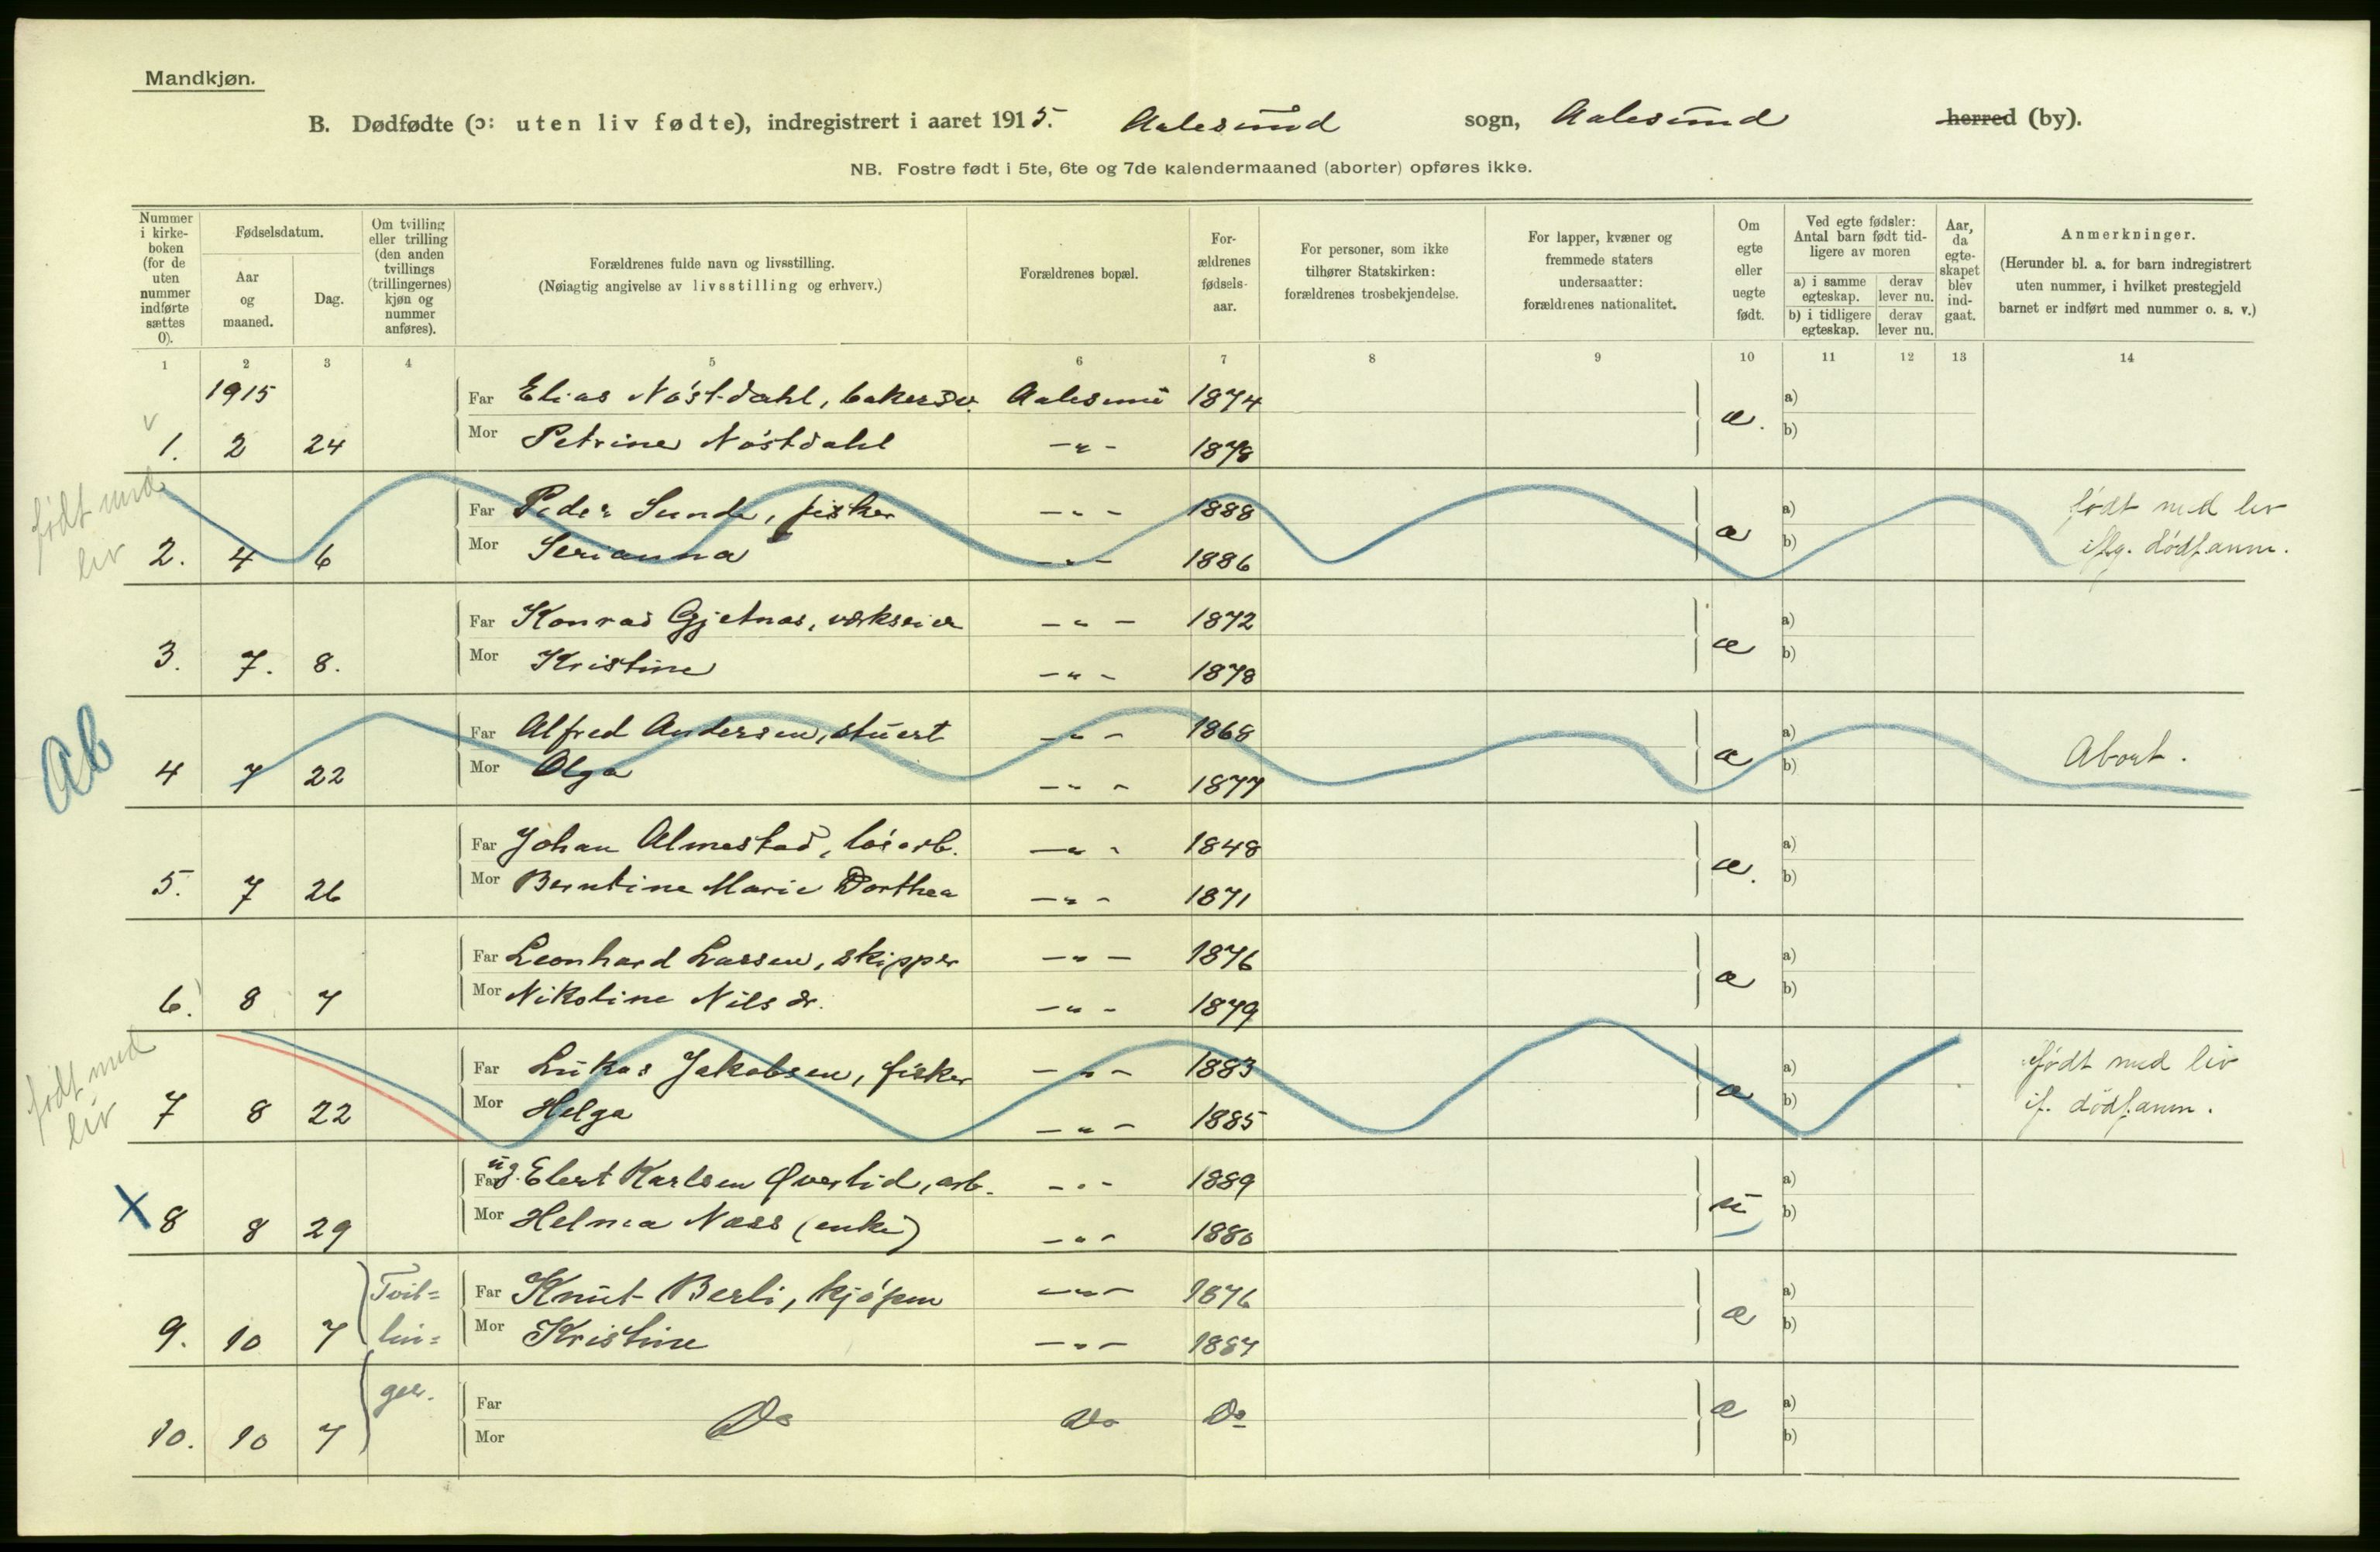 Mandkjøn.
B. Dødfødte (ɔ: uten liv fødte), indregistrert i aaret 1915. Aalesund sogn, Aalesund herred (by).
NB. Fostre født i 5te, 6te og 7de kalendermaaned (aborter) opføres ikke.
Nummer i kirke- boken (for de uten nummer indførte sættes 0).
Fødselsdatum.
Aar og maaned.
Dag.
Om tvilling eller trilling (den anden tvillings (trillingernes) kjøn og nummer anføres).
Forældrenes fulde navn og livsstilling.
(Nøiagtig angivelse av livsstilling og erhverv.)
Forældrenes bopæl.
For- ældrenes fødsels- aar.
For personer, som ikke tilhører Statskirken: forældrenes trosbekjendelse.
For lapper, kvæner og fremmede staters undersaatter: forældrenes nationalitet.
Om egte eller uegte født.
Ved egte fødsler: Antal barn født tid- ligere av moren
a) i samme egteskap. derav lever nu.
b) i tidligere egteskap. derav lever nu.
Aar, da egte- skapet blev ind- gaat.
Anmerkninger.
(Herunder bl. a. for barn indregistrert uten nummer, i hvilket prestegjeld barnet er indført med nummer o. s. v.)
1 2 3 4 5 6 7 8 9 10 11 12 13 14
1915 Far Elias Nöstdahl, bakersv. Aalesund 1874 a)
1. 2 24 Mor Petrine Nöstdahl -"- 1878 æ. b)
født med liv
Far Peder Sunde, fisker -"- 1888 a) født med liv
2. 4 6 Mor Serianna -"- 1886 æ b) iflg. dödsanm.
Far Konrad Gjetnæs, værkseier -"- 1872 a)
3. 7. 8. Mor Kristine -"- 1878 æ b)
Ab
Far Alfred Andersen, stuert -"- 1868 a)
4 7 22 Mor Olga -"- 1877 æ b) Abort.
Far Johan Almestad, løsarb. -"- 1848 a)
5. 7 26 Mor Berntine Marie Dorthea -"- 1871 æ. b)
Far Leonhard Larsen, skipper -"- 1876 a)
6. 8 7 Mor Nikoline Nilsdr. -"- 1879 æ b)
født med liv
Far Lukas Jakobsen, fisker -"- 1883 a) født med liv
7 8 22 Mor Helga -"- 1885 æ b) if. dödsanm.
Far ug. Elert Karlsen Øverlid, arb. -"- 1889 a)
X 8 8 29 Mor Helma Næss (enke) -"- 1880 u b)
Tvil= Far Knut Berli, kjöpm -"- 1876 a)
9. 10 7 lin= Mor Kristine -"- 1887 æ b)
ger. Far Do Do Do æ a)
10. 10 7 Mor b)